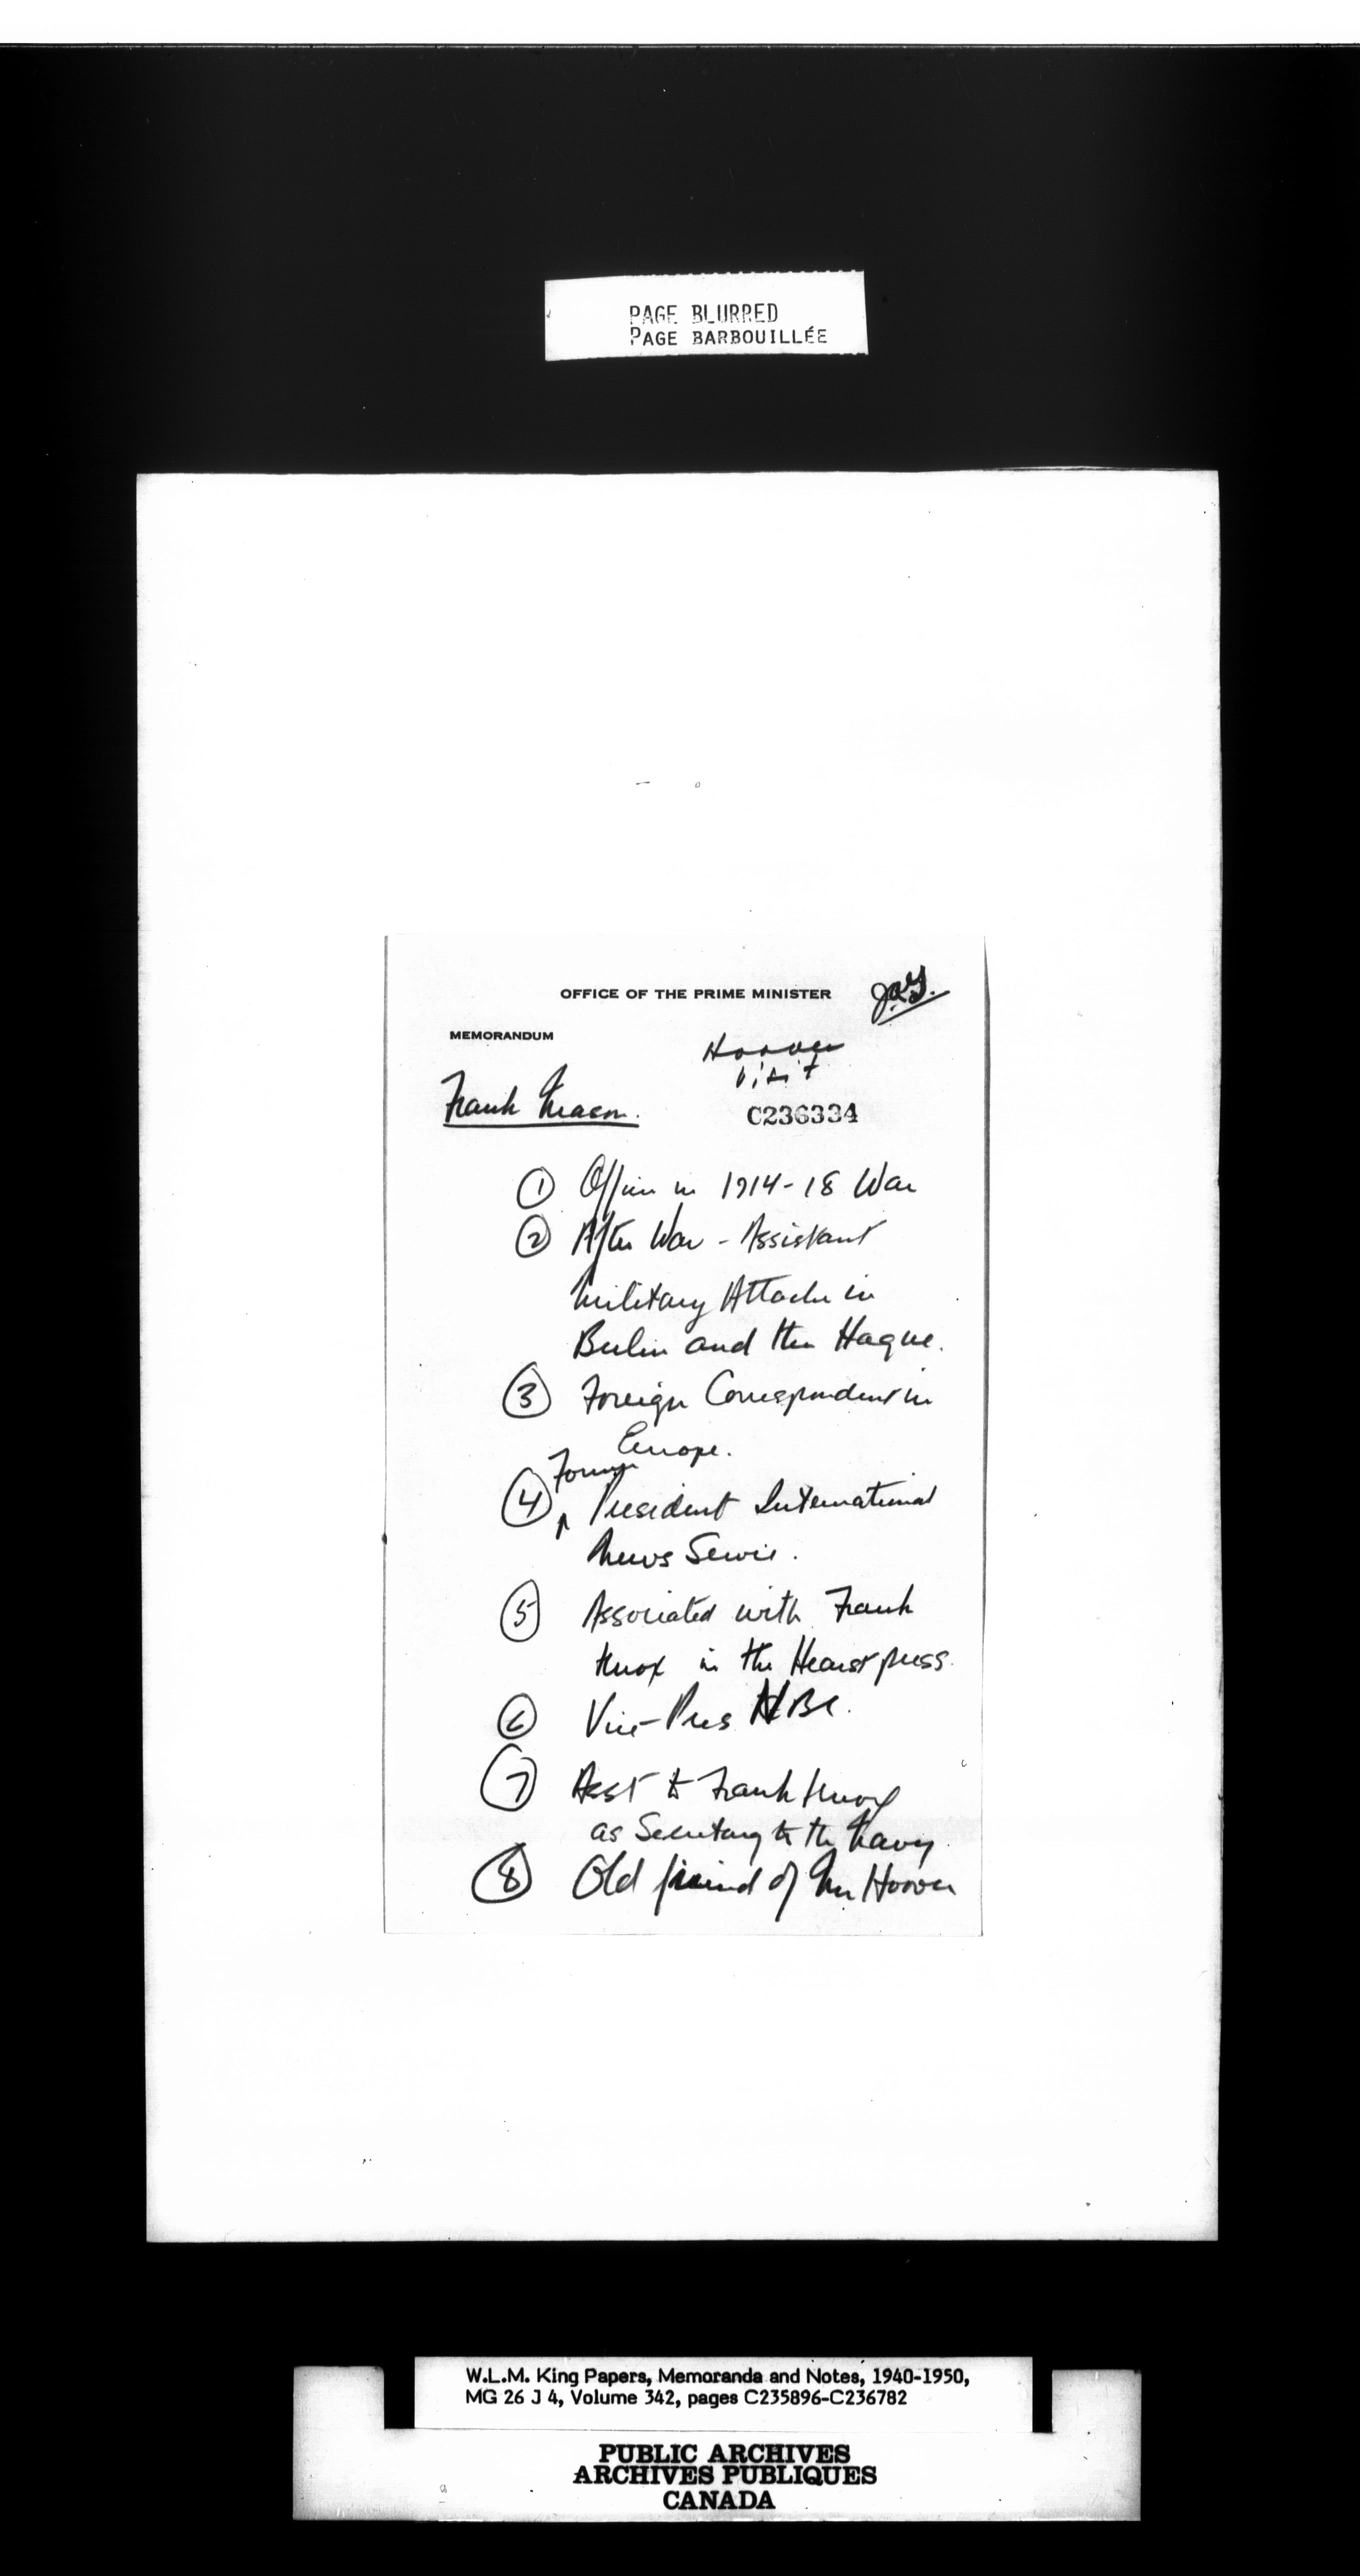 PAGE BLURRED
PAGE BARBOUILLÉE
OFFICE OF THE PRIME MINISTER
MEMORANDUM
Hoover
visit
Frank Mason.
C236334
① Officer in 1914-18 War
② After War - Assistant
Military Attache in
Berlin and the Hague.
③ Foreign Correspondent in
Europe.
Former
④ President International
News Service.
⑤ Associated with Frank
Knox in the Hearst press.
⑥ Vice-Pres NBC.
⑦ Asst to Frank Knox
as Secretary to the Navy
⑧ Old friend of Mr Hoover
W.L.M. King Papers, Memoranda and Notes, 1940-1950,
MG 26 J 4, Volume 342, pages C235896-C236782
PUBLIC ARCHIVES
ARCHIVES PUBLIQUES
CANADA